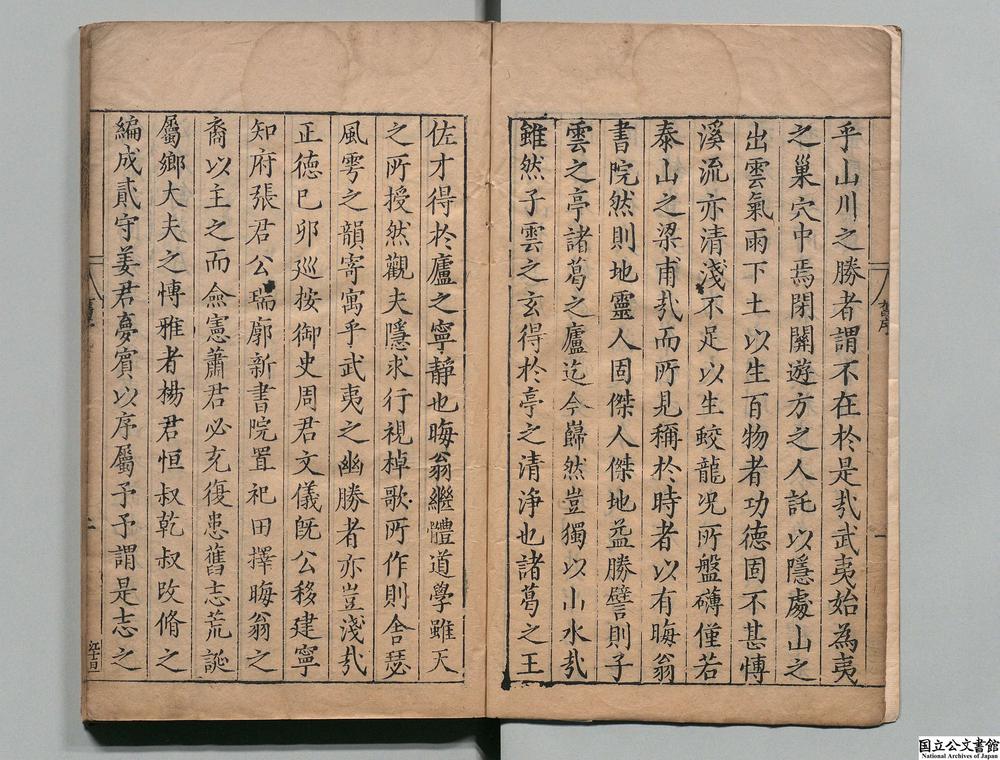 乎山川之勝者謂不在於是㦲武夷始為夷
之巢穴中焉閑闢遊方之人託以隱處山之
出雲氣雨下土以生百物者功德固不甚愽
溪流亦清淺不足以生蛟龍况所盤礴僅若
泰山之梁甫㦲而所見稱於時者以有晦翁
書院然則地靈人固傑人傑地益勝譬則子
雲之亭諸葛之廬迄今巋然豈獨以山水㦲
雖然子雲之玄得於亭之清浄也諸葛之王
佐才得於廬之寧靜也晦翁繼體道學雖天
之所授然觀夫隱求行視棹歌所作則舍瑟
風雩之韻寄寓乎武夷之幽勝者亦豈淺㦲
正德巳夘廵按御史周君文儀旣公移建寧
知府張君公瑞廓新書院置祀田擇晦翁之
裔以主之而僉憲蕭君必充復患舊志荒誕
屬鄉大夫之愽雅者楊君恒叔乾叔攺脩之
編成貳守姜君夢賔以序屬予予謂是志之
舊序
一
二
国立公文書館
National Archives of Japan